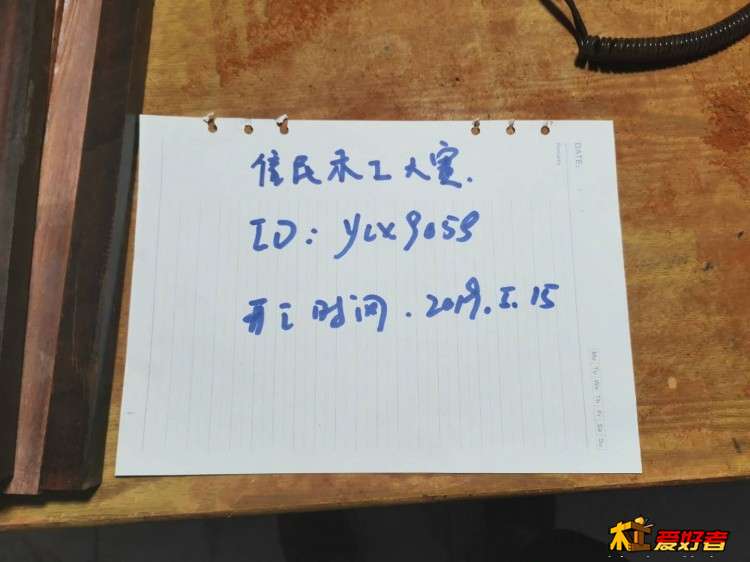 信民木工大赛.
ID: ycx9059
开工时间.2019.5.15
DATE:
Mo Tu We Th Fr Sa Su
木工爱好者